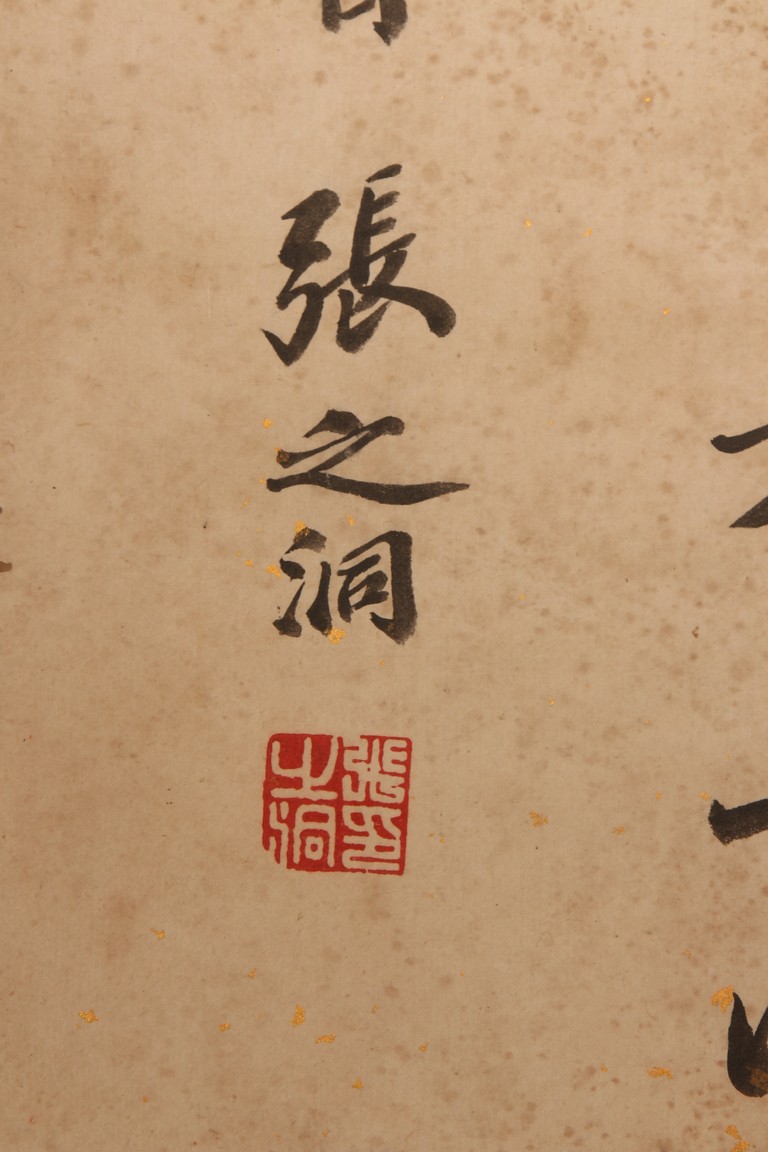 張之洞
張印之洞